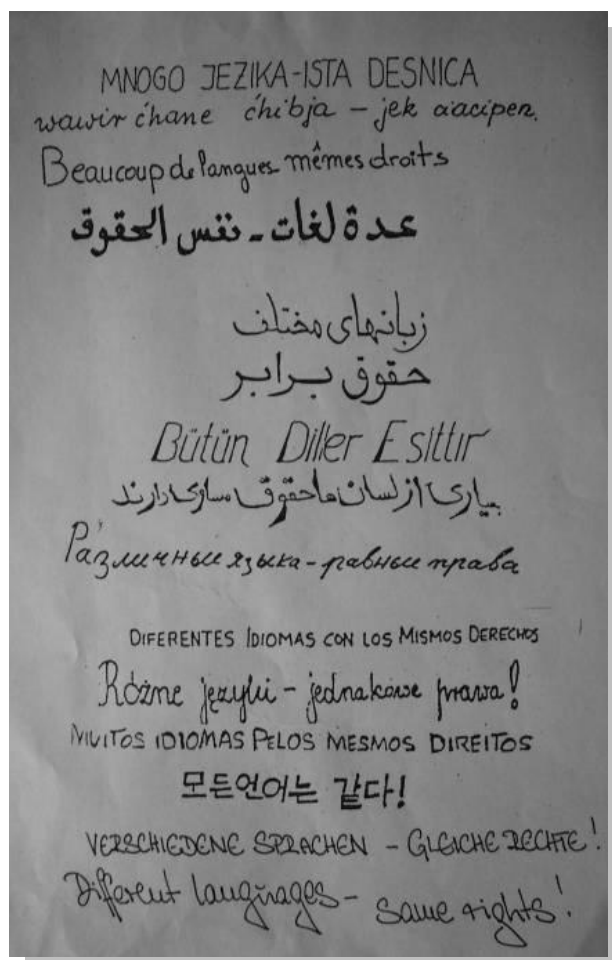 MNOGO JEZIKA-ISTA DESNICA
wawir ćhane ćhibja - jek ćaćipen.
Beaucoup de langues mêmes droits
عدة لغات - نفس الحقوق
زبانهای مختلف
حقوق برابر
Bütün Diller Esittir
از لسان ما حقوق مساوی دارند
Различные языка - равные права
DIFERENTES IDIOMAS CON LOS MISMOS DERECHOS
Różne języki - jednakowe prawa!
MUITOS IDIOMAS PELOS MESMOS DIREITOS
모든언어는 같다!
VERSCHIEDENE SPRACHEN - GLEICHE RECHTE!
Different languages - same rights!